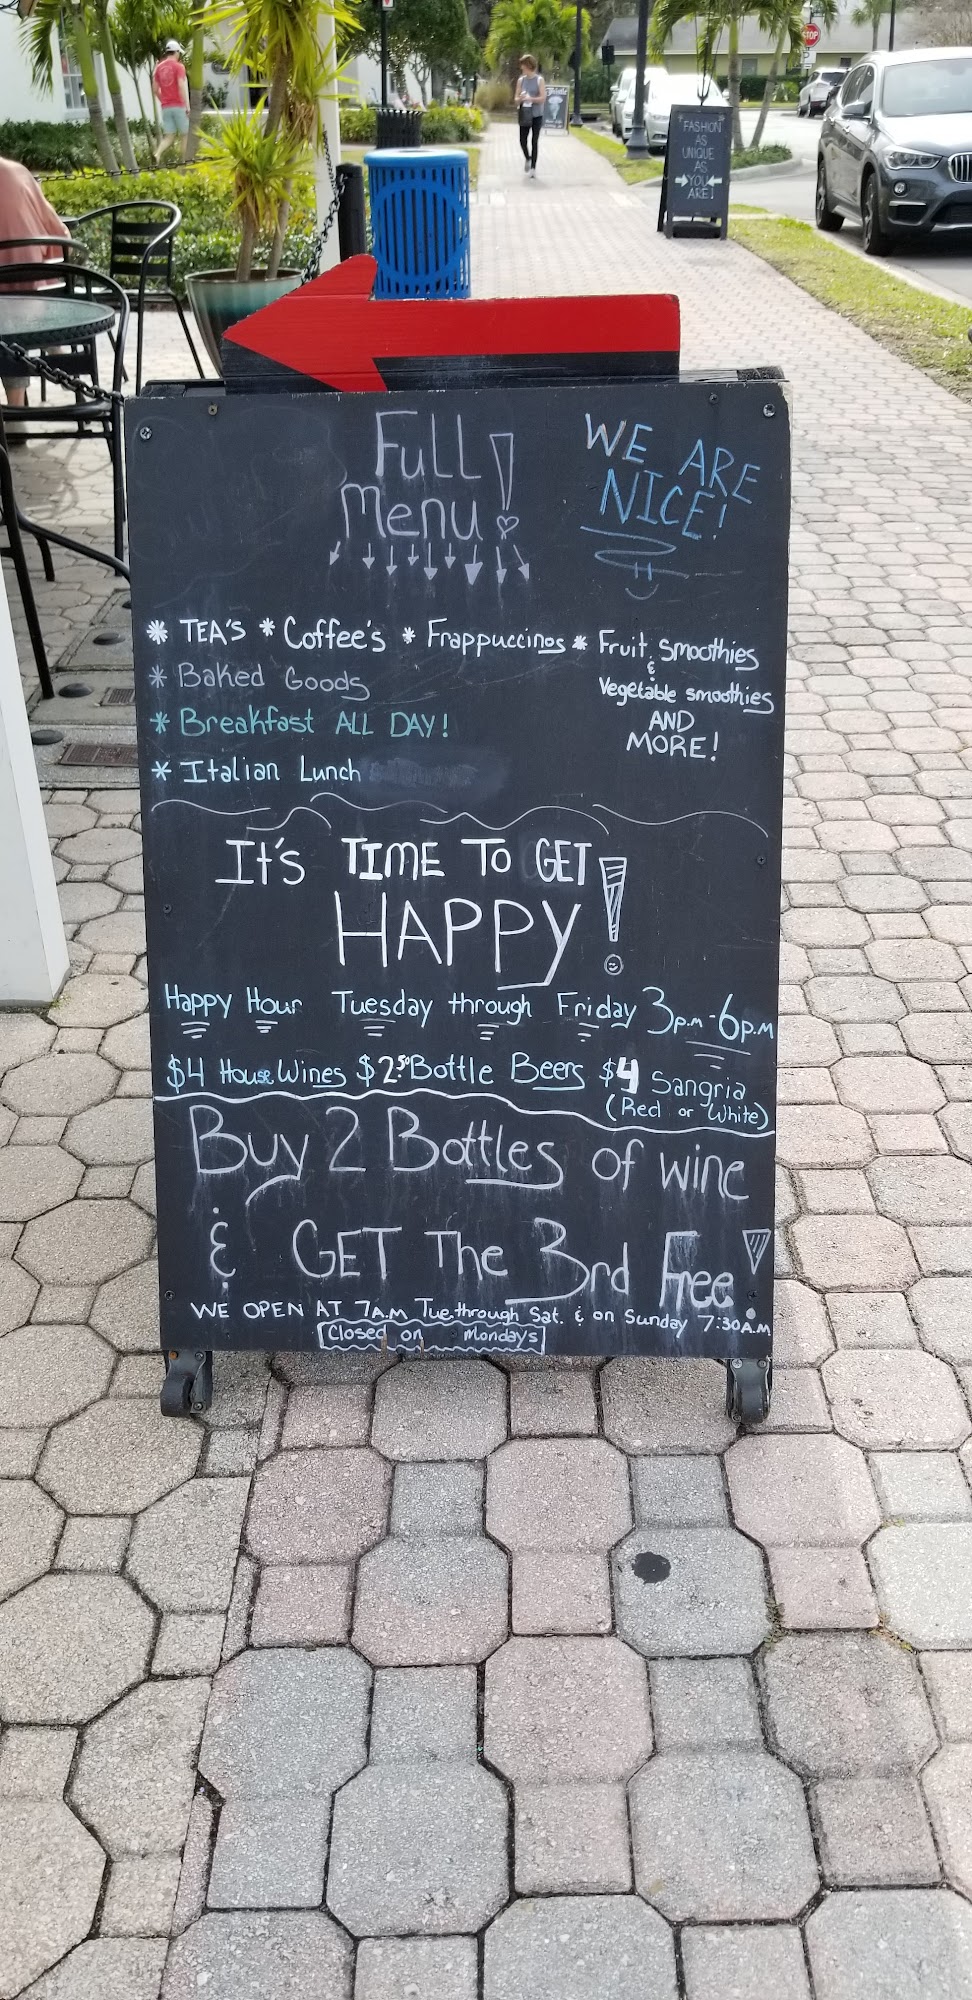 STOP
FASHION
AS
UNIQUE
AS
YOU
ARE!
Full
Menu!
WE ARE
NICE!
* TEA'S * Coffee's * Frappuccinos * Fruit Smoothies
&
Vegetable smoothies
AND
MORE!
* Baked Goods
* Breakfast ALL DAY!
* Italian Lunch
It's TIME TO GET
HAPPY!
Happy Hour Tuesday through Friday 3p.m-6p.m
$4 House Wines $2.50 Bottle Beers $4 Sangria
(Red or White)
Buy 2 Bottles of wine
& GET The 3rd Free!
WE OPEN AT 7A.M Tue.through Sat. & on Sunday 7:30A.M
Closed on Mondays